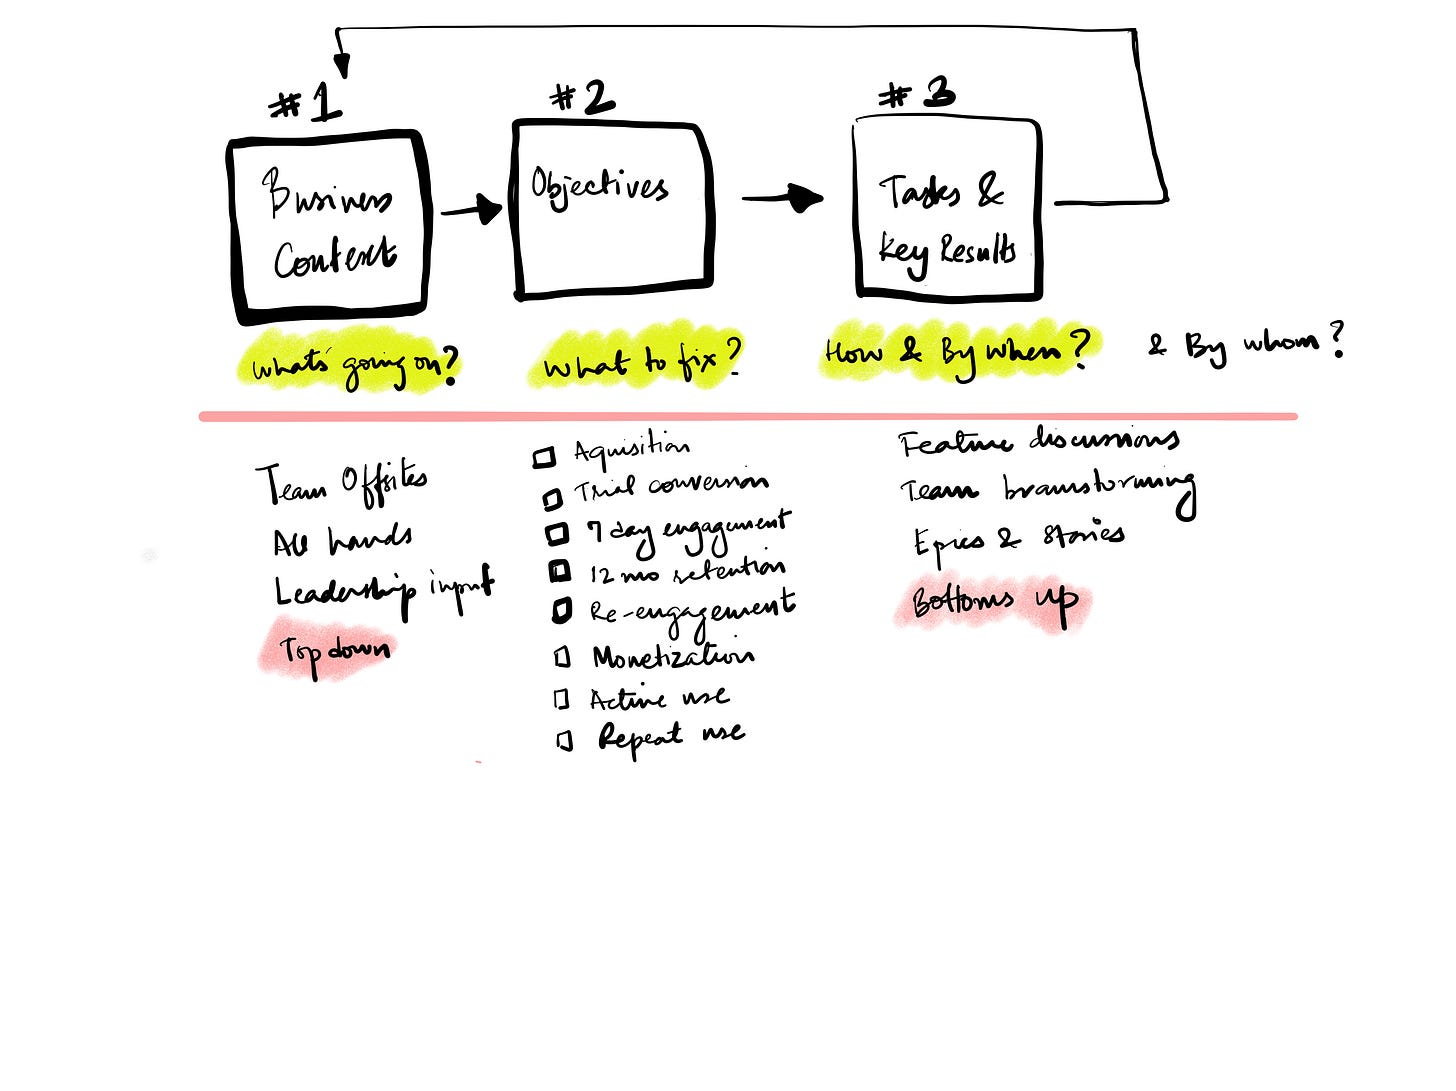 #1
Business
Context
What's going on?
Team Offsites
All hands
Leadership input
Top down
#2
Objectives
What to fix?
Aquisition
Trial conversion
7 day engagement
12 mo retention
Re-engagement
Monetization
Active use
Repeat use
#3
Tasks &
Key Results
How & By when? & By whom?
Feature discussions
Team brainstorming
Epics & Stories
Bottoms up